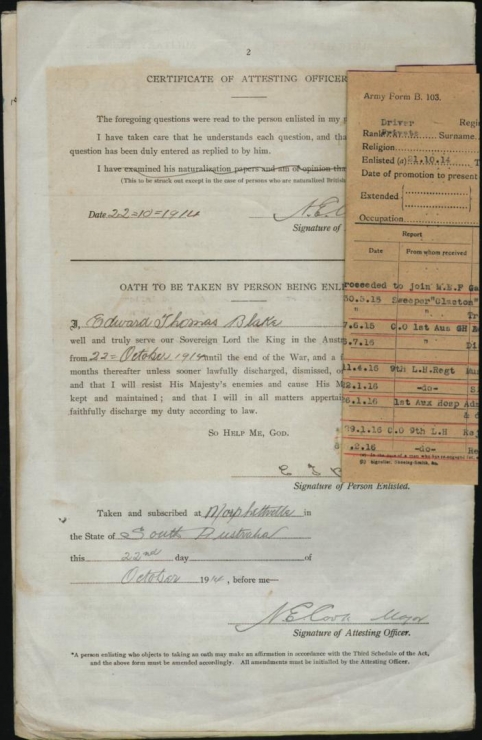 2
CERTIFICATE OF ATTESTING OFFICER
The foregoing questions were read to the person enlisted in my
I have taken care that he understands each question, and tha
question has been duly entered as replied to by him.
I have examined his naturalisation papers and am of opinion tha
(This to be struck out except in the case of persons who are naturalised British
Date 22-10-1914
N.E.C
Signature of
OATH TO BE TAKEN BY PERSON BEING ENLI
I, Edward Thomas Blake
well and truly serve our Sovereign Lord the King in the Austr
from 22 October 1914 until the end of the War, and a f
months thereafter unless sooner lawfully discharged, dismissed, o
and that I will resist His Majesty's enemies and cause His M
kept and maintained; and that I will in all matters appertai
faithfully discharge my duty according to law.
SO HELP ME, GOD.
E J B
Signature of Person Enlisted.
Taken and subscribed at Morphettville in
the State of South Australia
this 22nd day of
October 1914, before me—
N E Cook Major
Signature of Attesting Officer.
*A person enlisting who objects to taking an oath may make an affirmation in accordance with the Third Schedule of the Act,
and the above form must be amended accordingly. All amendments must be initialled by the Attesting Officer.
Army Form B. 103.
Driver Regi
Rank Private Surname
Religion
Enlisted (a) 21.10.14 T
Date of promotion to present
Extended
Occupation
Report
Date From whom received
roceeded to join M.E.F Ga
30.5.15 Sweeper "Clacton"
" " Tr
7.6.15 C.O 1st Aus GH
.7.16 " Di
11.4.16 9th L.H.Regt
2.1.16 -do-
6.1.16 1st Aux Hosp Adm
29.1.16 C.O 9th L.H Rej
.2.16 -do- Re
(b) Signaller, Shoeing-Smith, &c.